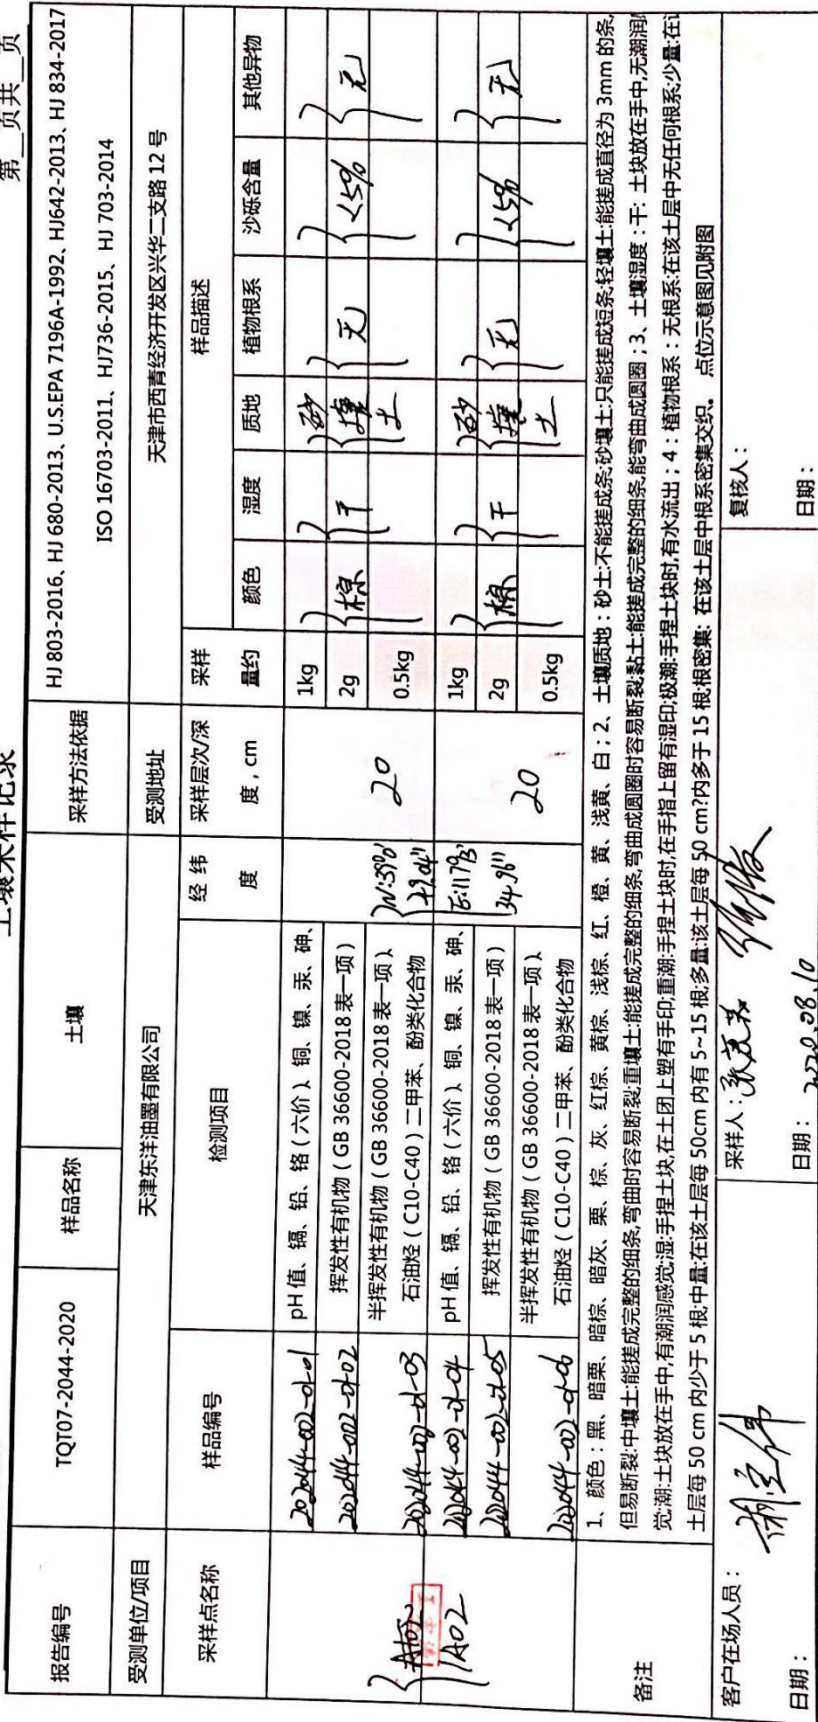 土壤采样记录
第_页共_页
报告编号 TQT07-2044-2020 样品名称 土壤 采样方法依据 HJ 803-2016、HJ 680-2013、U.S.EPA 7196A-1992、HJ642-2013、HJ 834-2017
ISO 16703-2011、HJ736-2015、HJ 703-2014
受测单位/项目 天津东洋油墨有限公司 受测地址 天津市西青经济开发区兴华二支路12号
采样点名称 样品编号 检测项目 经纬度 采样层次/深度，cm 采样量约 样品描述
颜色 湿度 质地 植物根系 沙砾含量 其他异物
202044-002-01-01 pH值、镉、铅、铬（六价）、铜、镍、汞、砷、 1kg
202044-002-01-02 挥发性有机物（GB 36600-2018表一项） 2g 棕 干 砂壤土 无 <5% 无
202044-002-01-03 半挥发性有机物（GB 36600-2018表一项）、 20 0.5kg
石油烃（C10-C40）二甲苯、酚类化合物
N:39°0'
49.04"
A02
202044-002-01-04 pH值、镉、铅、铬（六价）、铜、镍、汞、砷、 1kg
E:117°13'
34.96"
202044-002-01-05 挥发性有机物（GB 36600-2018表一项） 2g 棕 干 砂壤土 无 <5% 无
202044-002-01-06 半挥发性有机物（GB 36600-2018表一项）、 20 0.5kg
石油烃（C10-C40）二甲苯、酚类化合物
备注
1、颜色：黑、暗栗、暗棕、暗灰、栗、棕、灰、红棕、黄棕、浅棕、红、橙、黄、浅黄、白；2、土壤质地：砂土:不能搓成条;砂壤土:只能搓成短条;轻壤土:能搓成直径为3mm的条,
但易断裂;中壤土:能搓成完整的细条,弯曲时容易断裂;重壤土:能搓成完整的细条,弯曲成圆圈时容易断裂;黏土:能搓成完整的细条,能弯曲成圆圈；3、土壤湿度：干：土块放在手中,无潮润
觉;潮:土块放在手中,有潮润感觉;湿:手捏土块,在土团上塑有手印;重潮:手捏土块时,在手指上留有湿印;极潮:手捏土块时,有水流出；4：植物根系：无根系:在该土层中无任何根系;少量:在
土层每50 cm内少于5根;中量:在该土层每50cm内有5~15根;多量:该土层每50 cm?内多于15根;根密集: 在该土层中根系密集交织。 点位示意图见附图
客户在场人员： 采样人： 复核人：
日期： 日期： 2020.08.10 日期：